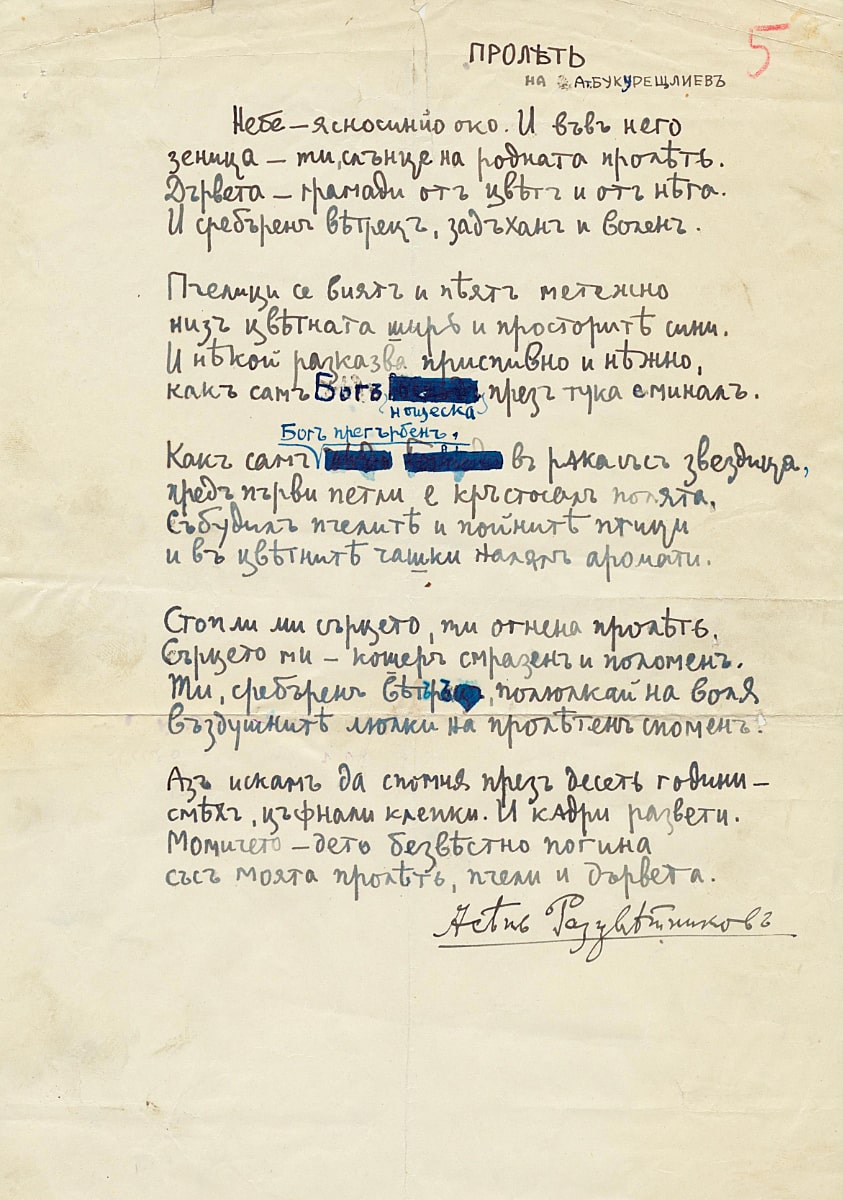 5
ПРОЛѢТЬ
НА Ат. БУКУРЕЩЛИЕВЪ
Небе – ясносиньо око. И въвъ него
зеница – ти, слънце на родната пролѣть.
Дървета – грамади отъ цвѣтъ и отъ нѣга.
И сребъренъ вѣтрецъ, задъханъ и воленъ.
Пчелици се виятъ и пѣятъ метежно
низъ цвѣтната ширь и просторитѣ сини.
И нѣкой разказва приспивно и нѣжно,
какъ самъ Богъ презъ тука е миналъ.
нощеска
Богъ прегърбенъ,
Какъ самъ въ рѫка със звездица,
предъ първи петли е кръстосалъ полята,
събудилъ пчелитѣ и пойнитѣ птици
и въ цвѣтнитѣ чашки налялъ аромати.
Стопли ми сърцето, ти огнена пролѣть.
Сърцето ми – кошеръ смразенъ и поломенъ.
Ти, сребъренъ вѣтъръ, полюлкай на воля
въздушнитѣ люлки на пролѣтенъ споменъ.
Азъ искамъ да спомня презъ десеть години –
смѣхъ, цъфнали клепки. И кѫдри развети.
Момичето – дето безвѣстно погина
със моята пролѣть, пчели и дървета.
Асѣнъ Разцвѣтниковъ